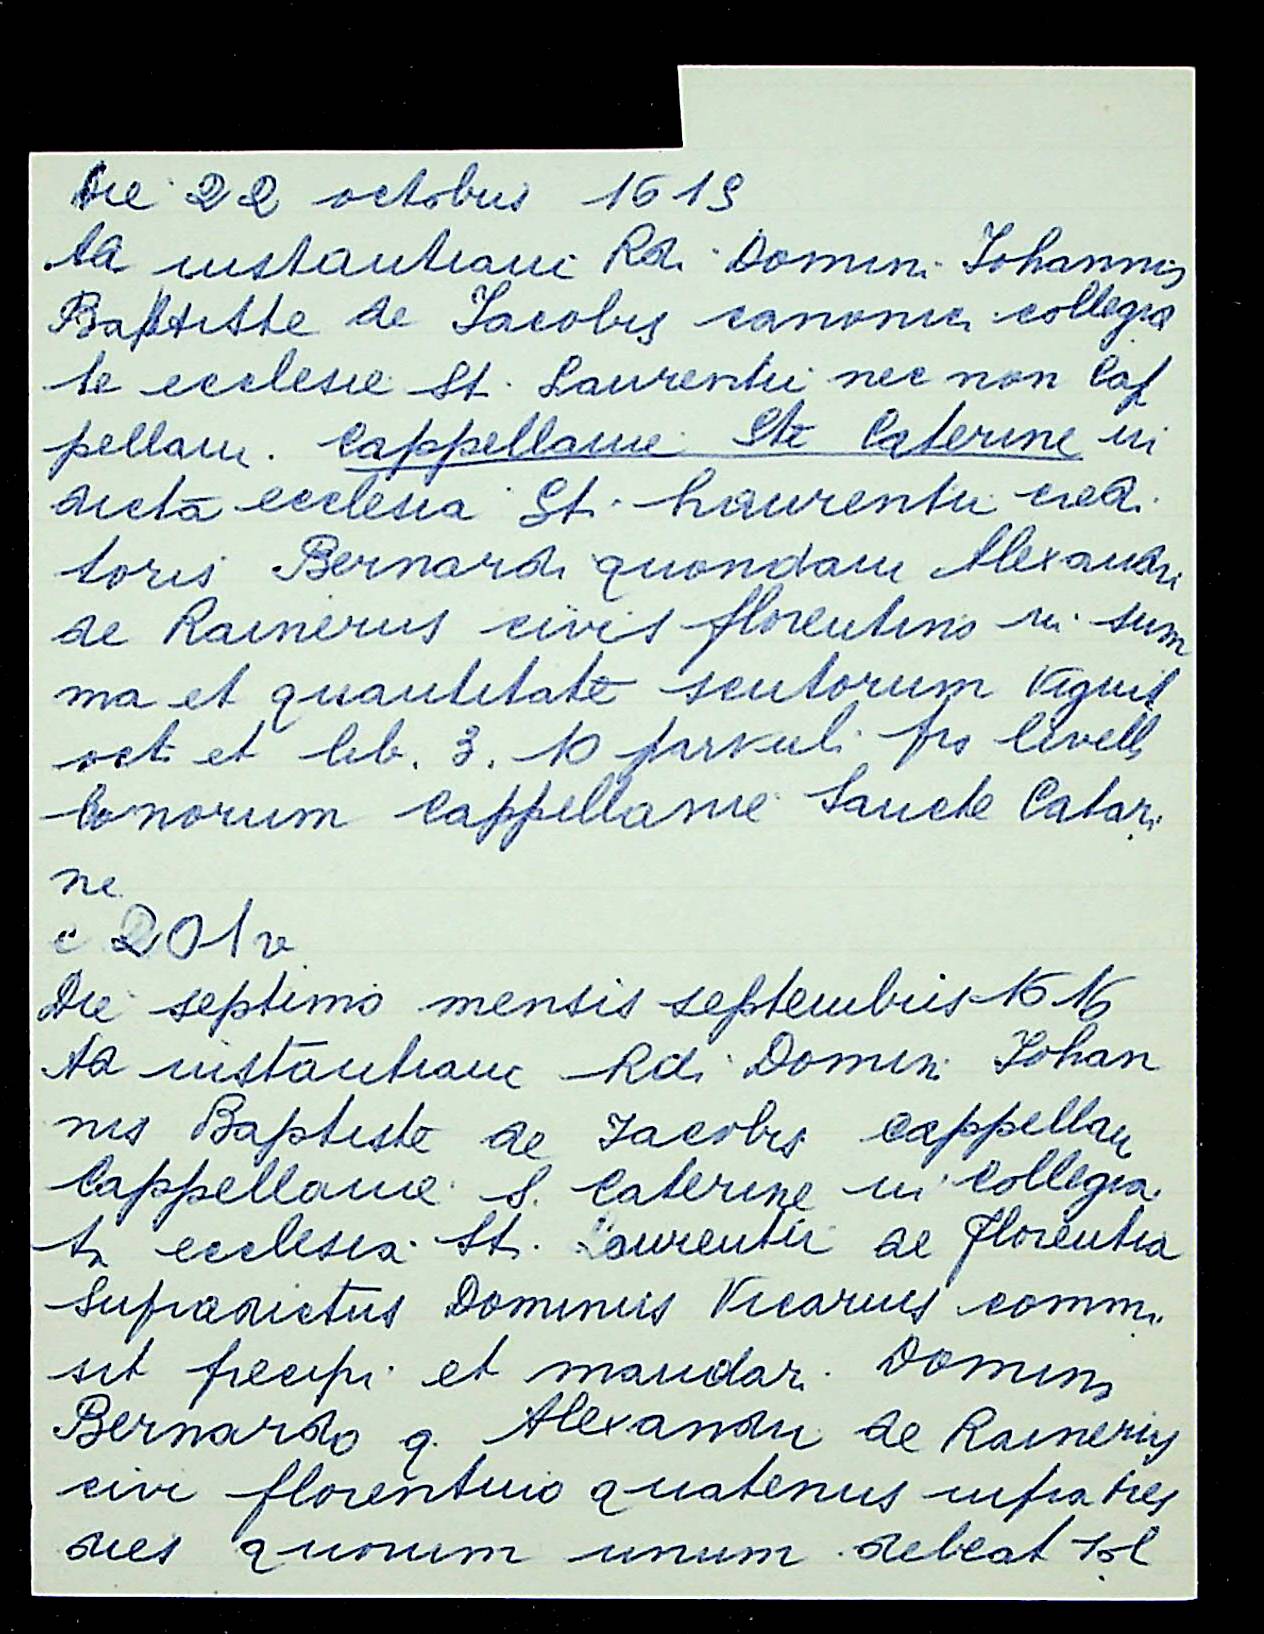 Die 22 octobris 1619
Ad instantiam Rdi Domini Johannis
Baptiste de Jacobis canonici collegia
te ecclesie Sti Laurentii nec non Cap
pellani Cappellanie Ste Caterine in
dicta ecclesia Sti Laurentii credi
toris Bernardi quondam Alexandri
de Raineriis civis florentino in sum
ma et quantitate scutorum viginti
octi et lib. 3. 10 parvuli pro livelli
bonorum Cappellanie Sancte Catari
ne
c 201v
Die septimo mensis septembris 1616
Ad instantiam Rdi Domini Johan
nis Baptiste de Jacobis cappellani
Cappellanie S. Caterine in collegia
ta ecclesia Sti. Laurentii de Florentia
Supradictus Dominus Vicarius commi
sit precipi et mandari Domino
Bernardo q. Alexandri de Raineriis
civi florentino quatenus infra tres
dies quorum unum debeat sol